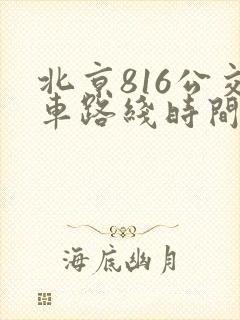 北京816公交
車路綫時間
海底幽月